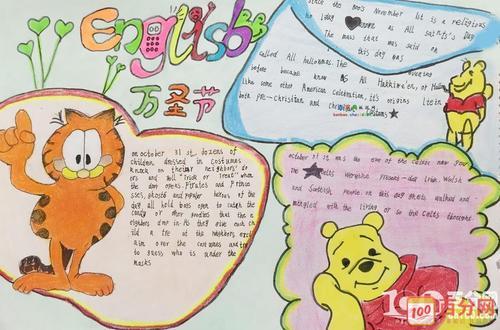 English
万圣节
on october 31st dozens of
children dressed in costumes
knock on their neighbors' do
ors and yell "Trick or Treat" when
the door opens. Pirates and prince
sses, ghosts and popular heroes of the
day all hold bags open to catch the
candy or other goodies that the n
eighbors drop in. As they give each ch
ild a treat the neighbors excl
aim over the costumes and try
to guess who is under the
masks
Since the 800s November 1st is a religious
holiday known as All Saints's Day
The mass that was said on
this day was
called All hallowmas. The
before became known as All
like some other American celebration, its origins lie in
both pre-Christian and Christian
customs
October 31 st was the eve of the
The Celts
Irish, Welsh
and Scottish people. on this day ghosts walked and
mingled with the living or so the Celts thought
100
百分网